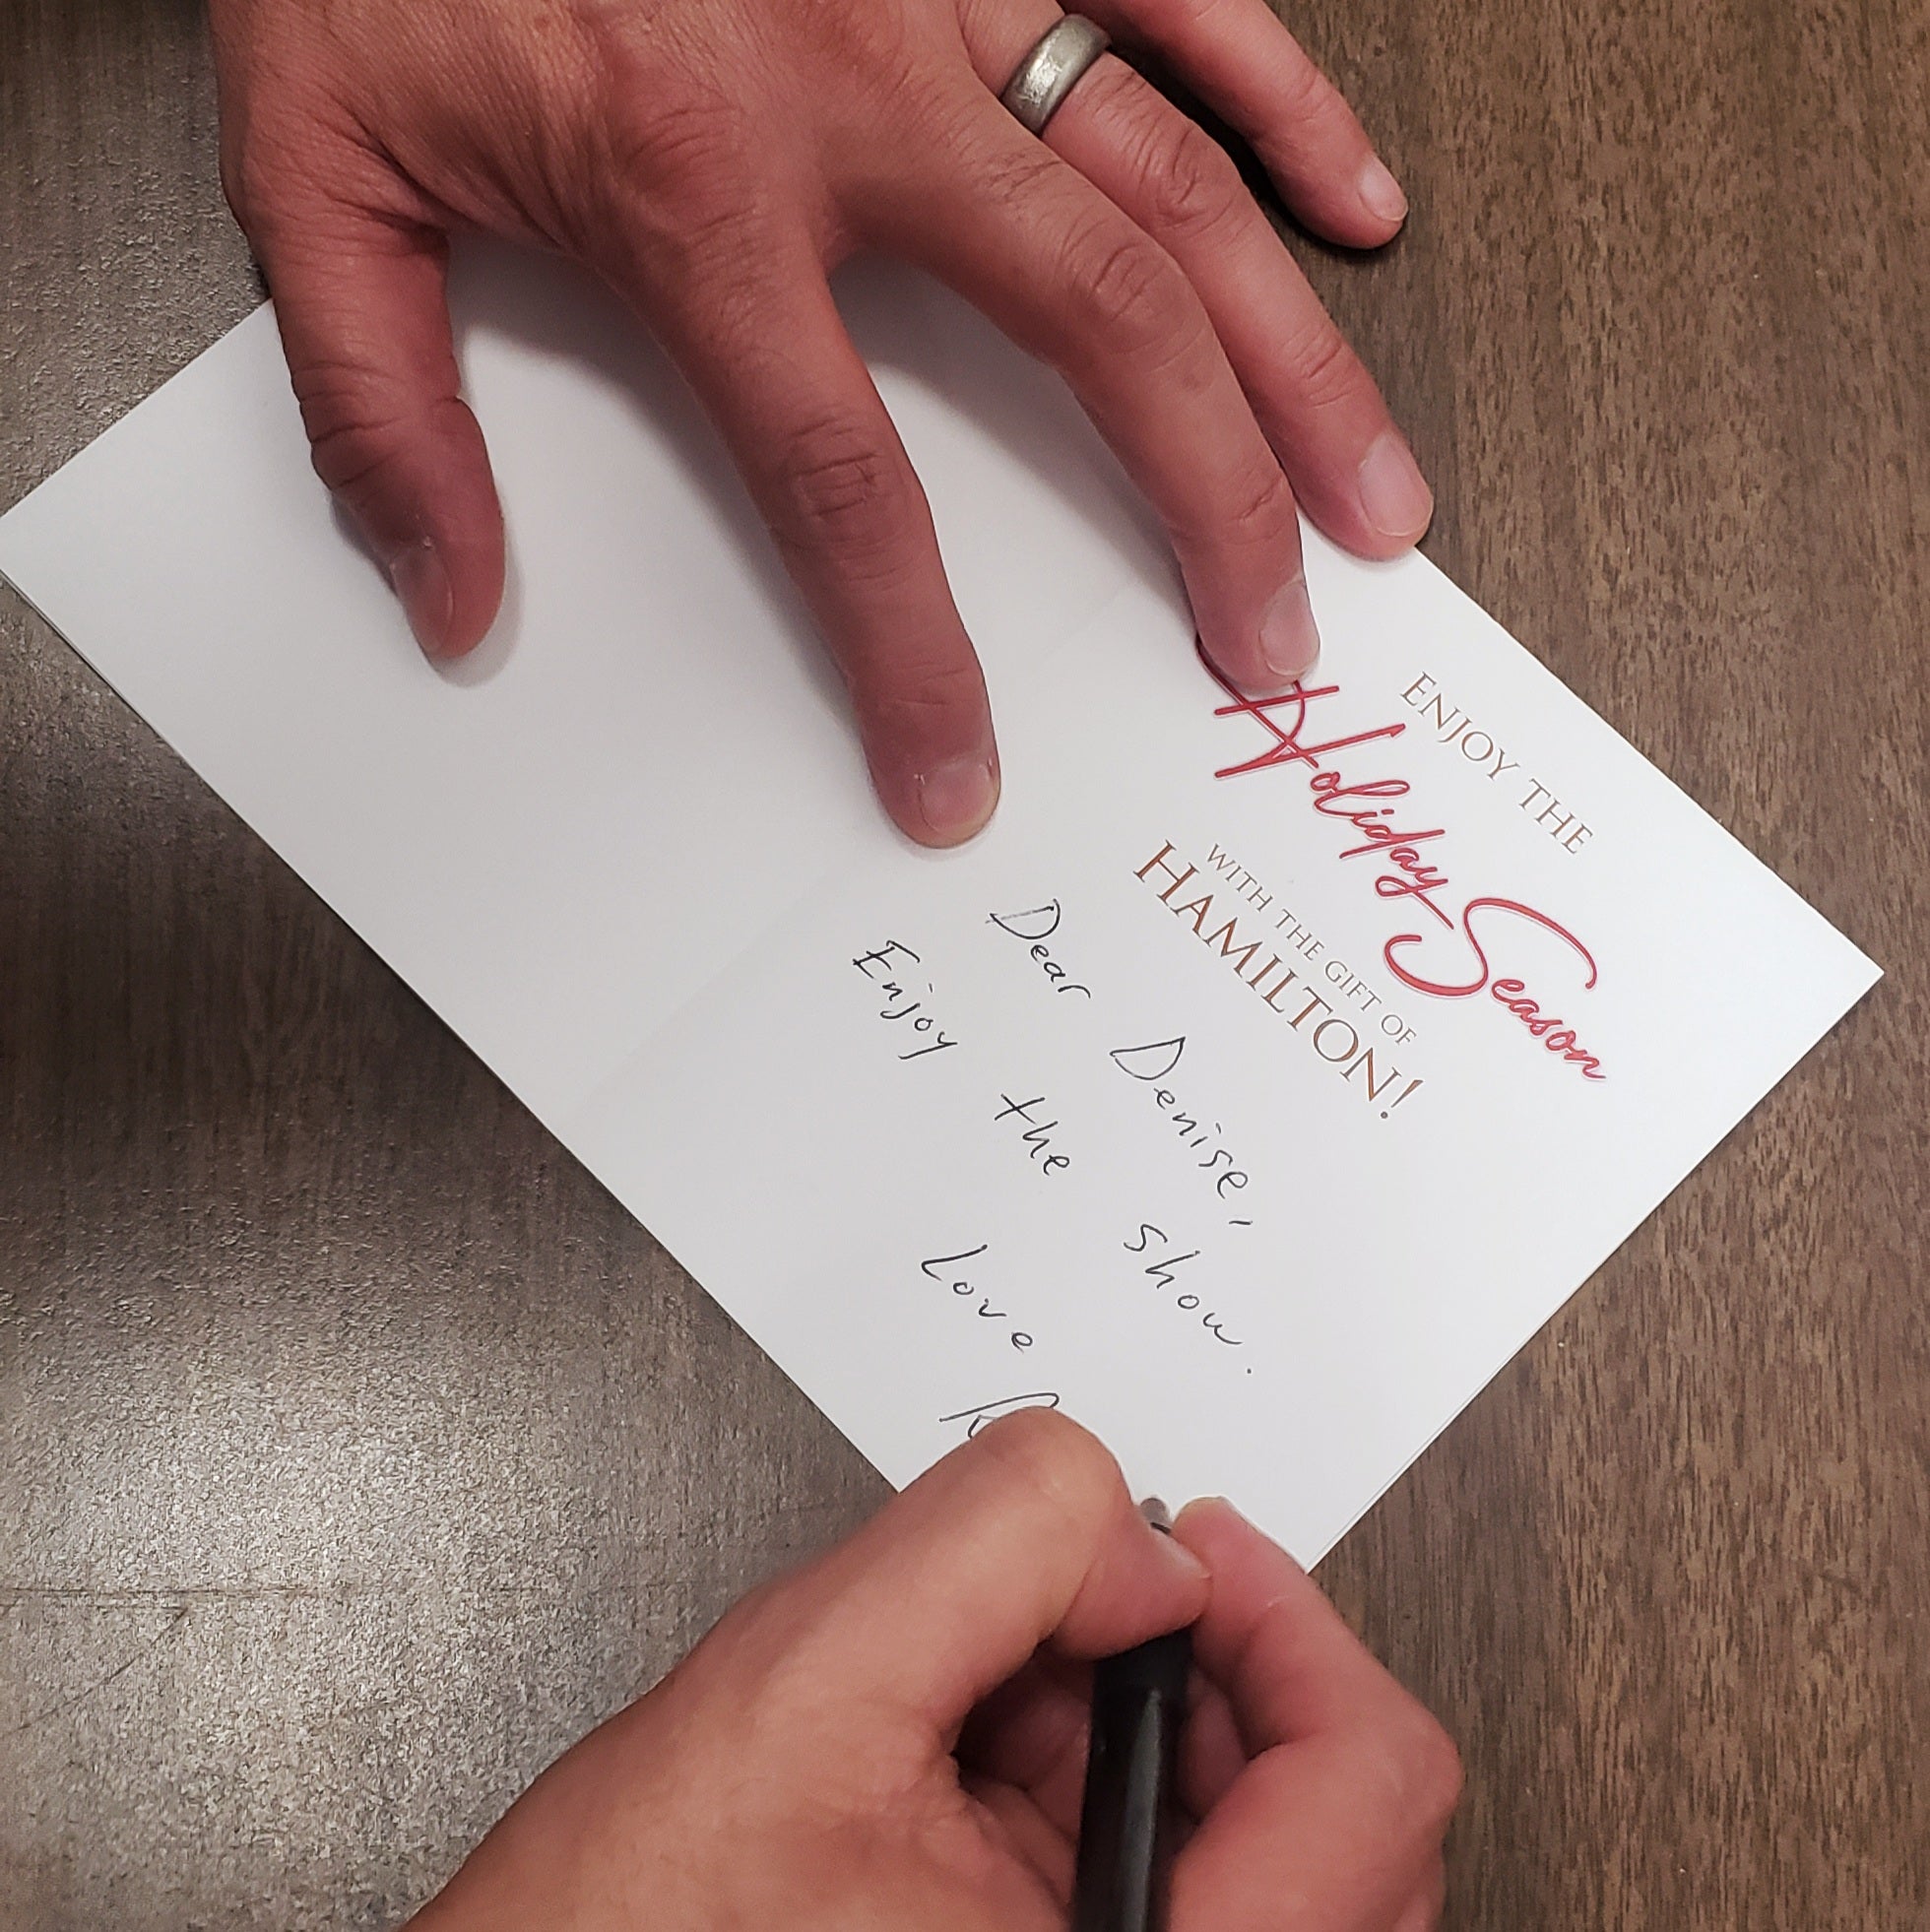 ENJOY THE
Holiday Season
WITH THE GIFT OF
HAMILTON!
Dear Denise,
Enjoy the show.
Love